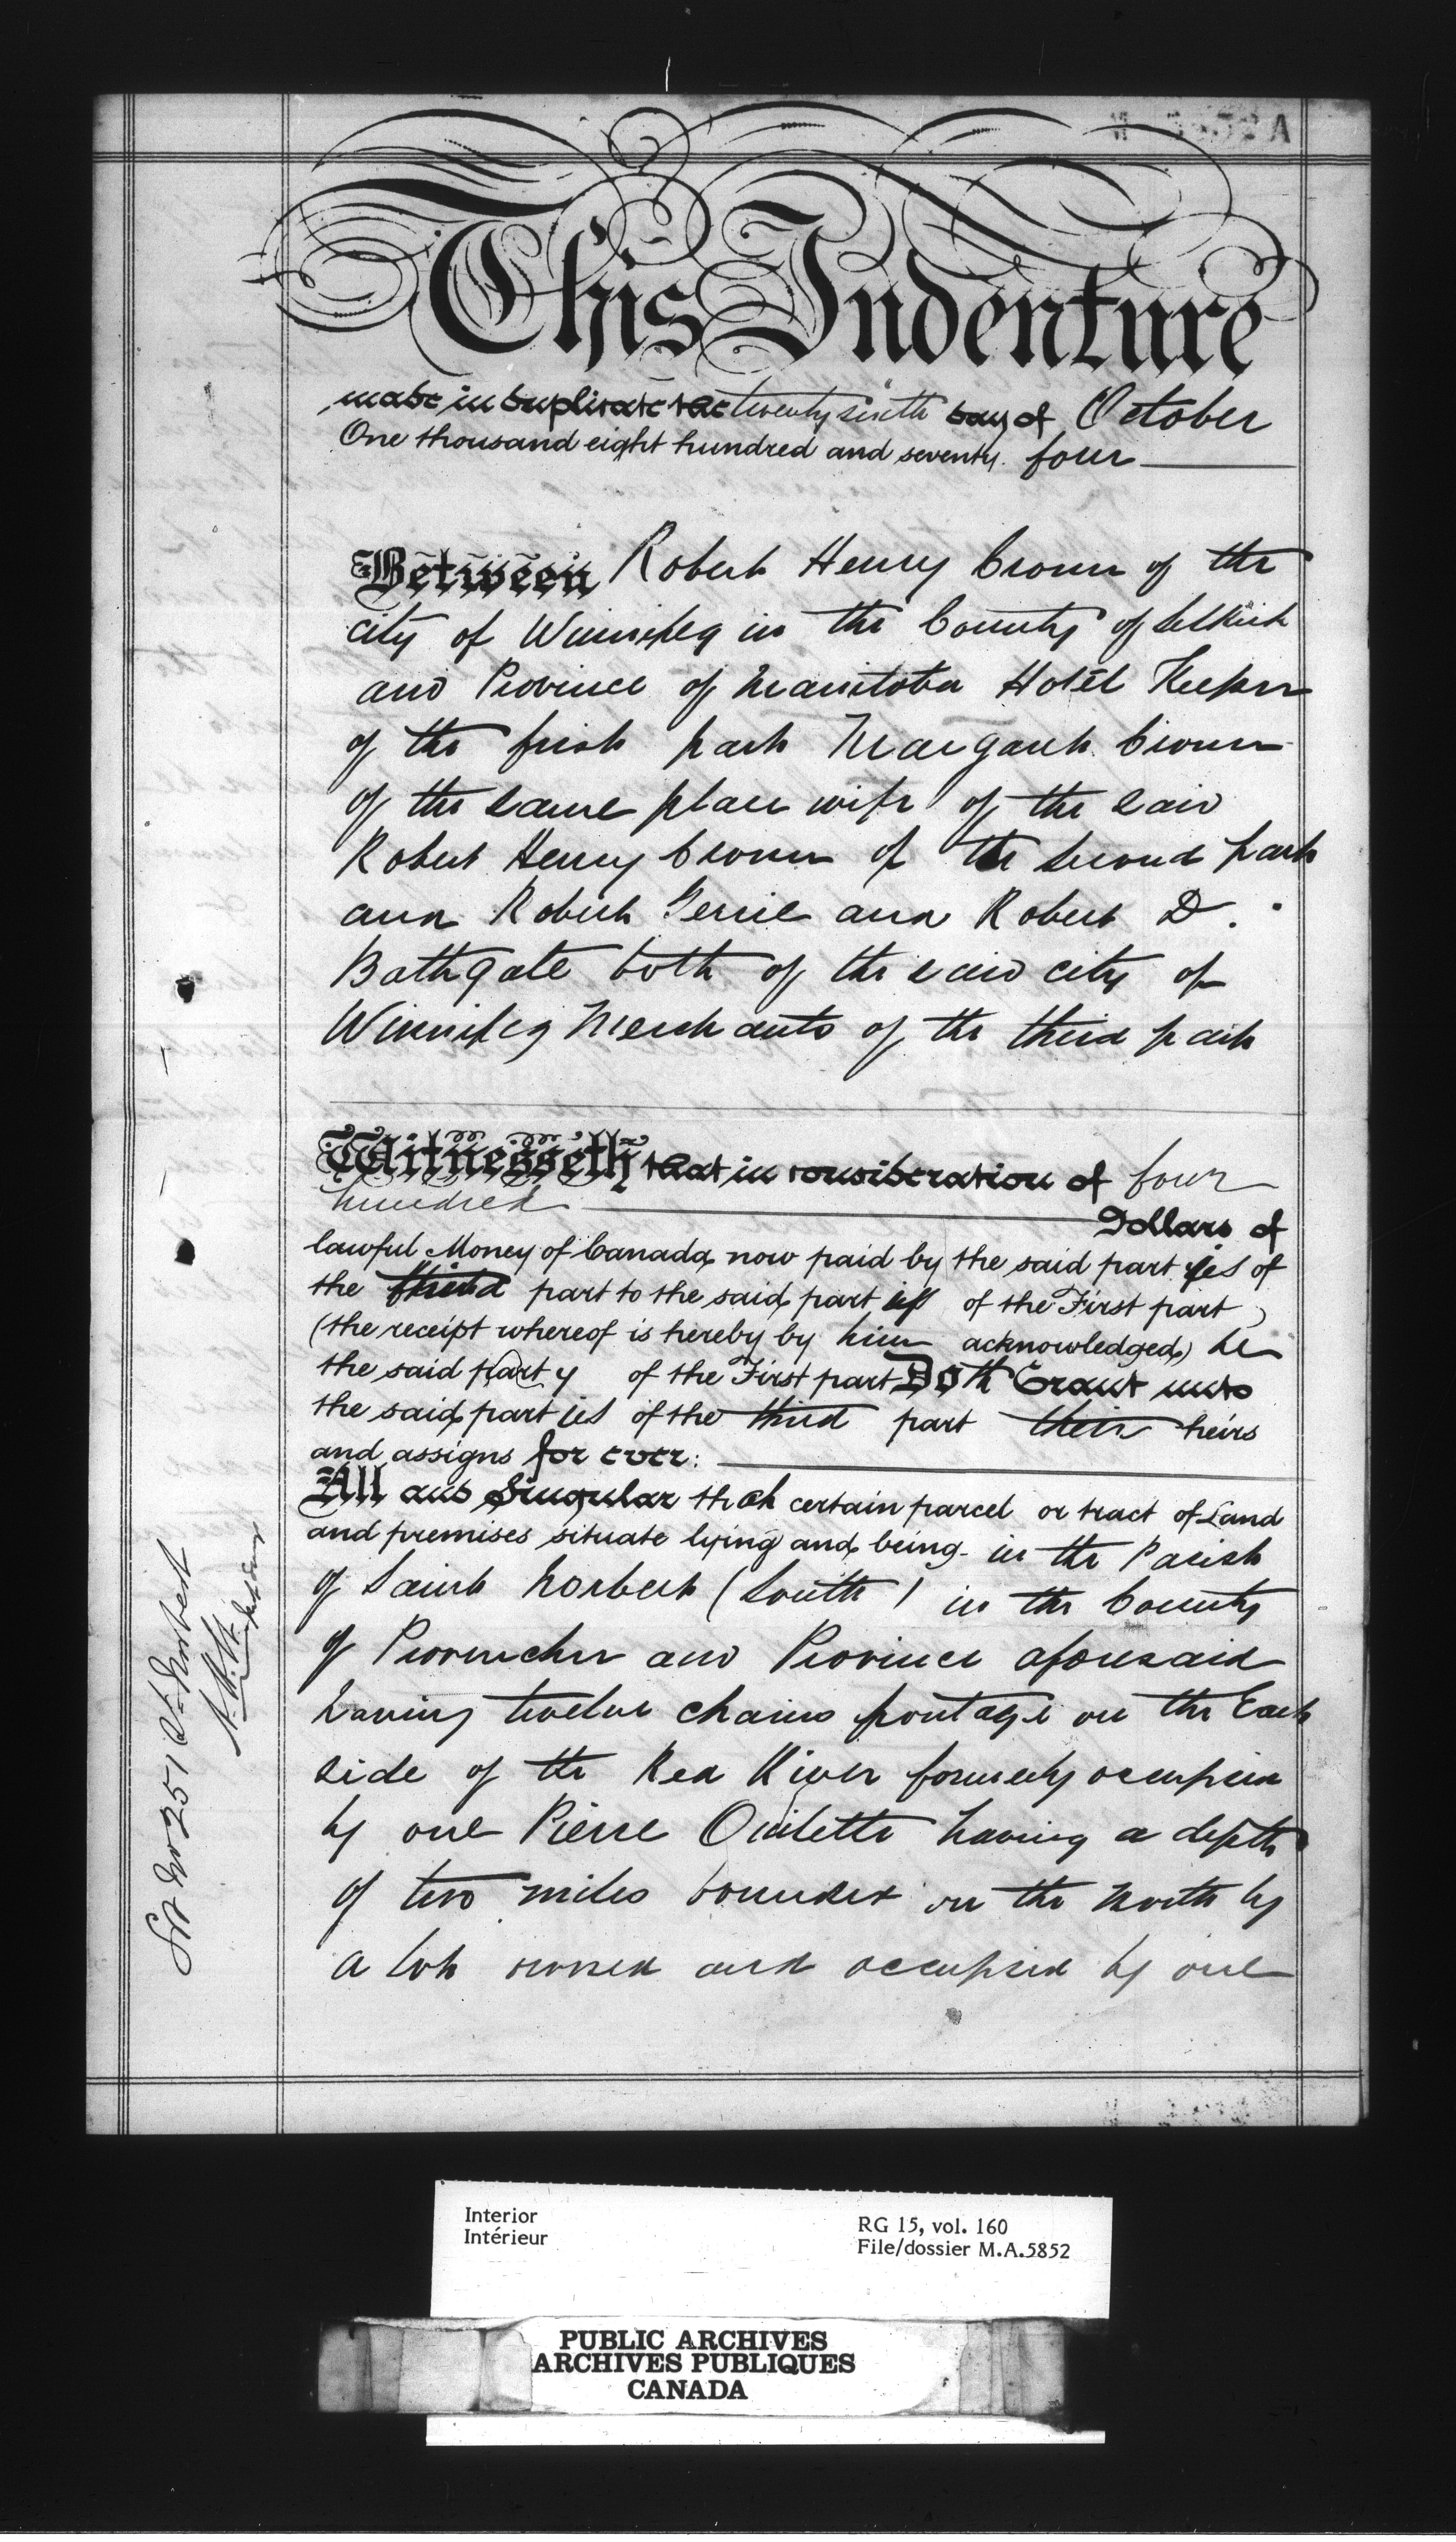 This Indenture
made in duplicate the twenty sixth day of October
One thousand eight hundred and seventy four
Between Robert Henry Crown of the
city of Winnipeg in the County of Selkirk
and Province of Manitoba Hotel Keeper
of the first part Margaret Crown
of the same place wife of the said
Robert Henry Crown of the second part
and Robert Gerrie and Robert D.
Bathgate both of the said city of
Winnipeg Merchants of the third part
Witnesseth that in consideration of four
hundred Dollars of
lawful Money of Canada now paid by the said parties of
the third part to the said part of the First part
(the receipt whereof is hereby by him acknowledged) he
the said party of the First part Doth Grant unto
the said parties of the third part their heirs
and assigns for ever:
All and Singular that certain parcel or tract of Land
and premises situate lying and being in the Parish
of Saint Norbert (South) in the County
of Provencher and Province aforesaid
having twelve chains frontage on the East
side of the Red River formerly occupied
by one Pierre Ouilette having a depth
of two miles bounded on the North by
a lot owned and occupied by one
Lot No 251 St. Norbert
Interior
Intérieur
RG 15, vol. 160
File/dossier M.A.5852
PUBLIC ARCHIVES
ARCHIVES PUBLIQUES
CANADA